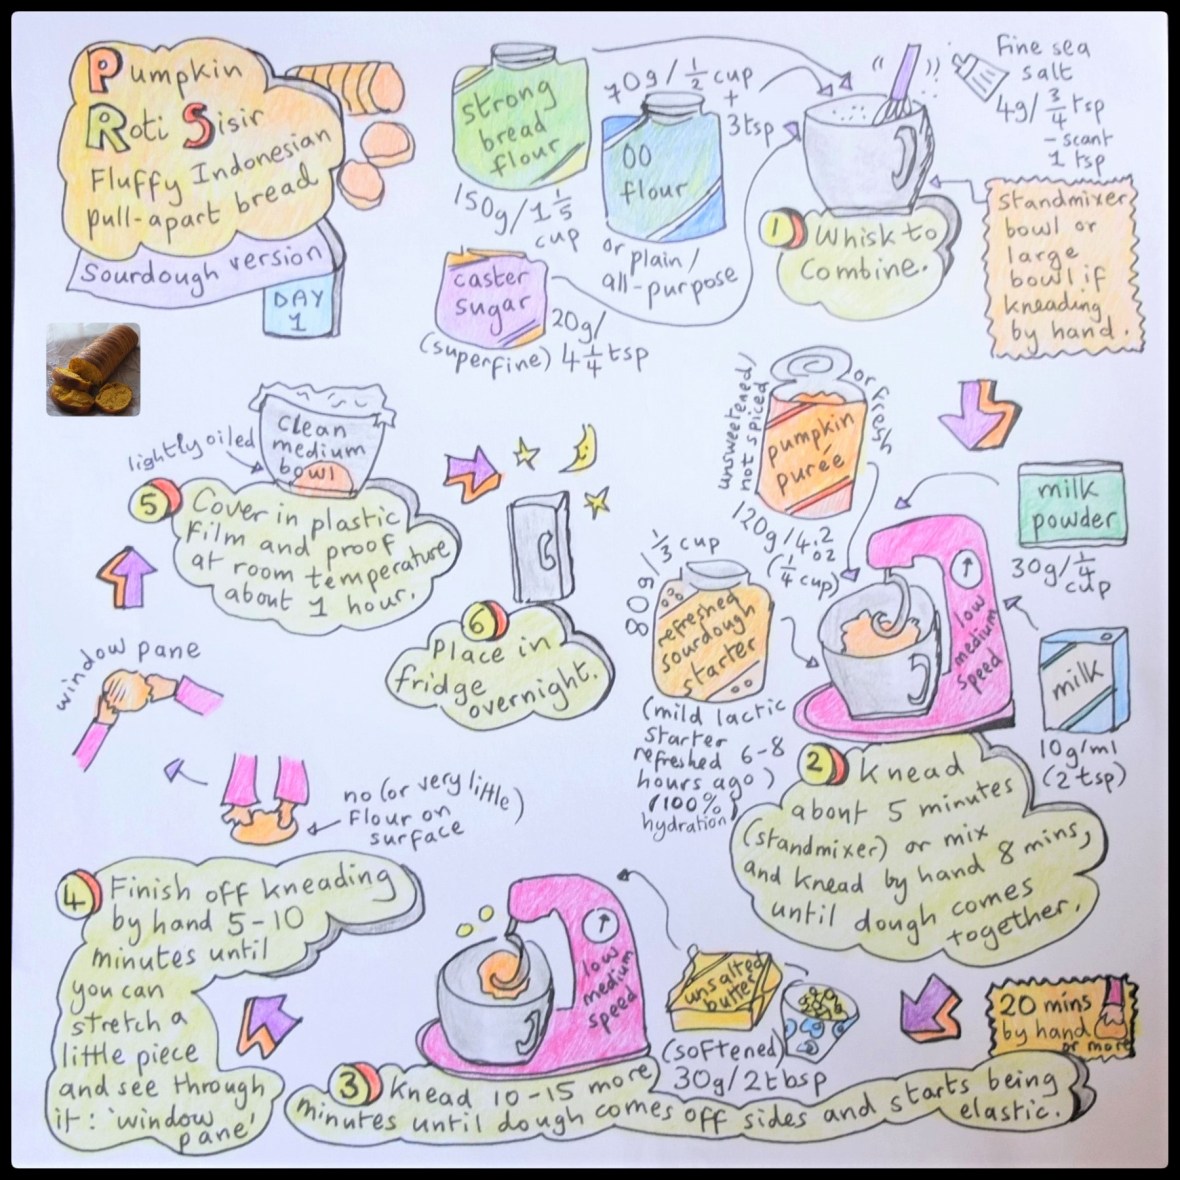 Pumpkin
Roti Sisir
Fluffy Indonesian
pull-apart bread
Sourdough version
DAY
1
strong
bread
flour
150g/1 1/5
cup
70g/ 1/2 cup
+
3tsp
00
flour
or plain/
all-purpose
caster
sugar
20g/
(superfine) 4 1/4 tsp
Fine sea
salt
4g/ 3/4 tsp
- scant
1 tsp
1 Whisk to
combine.
standmixer
bowl or
large
bowl if
kneading
by hand.
unsweetened/
not spiced
or fresh
pumpkin
purée
120g/4.2
oz
(1/4 cup)
milk
powder
30g/ 1/4
cup
80g/ 1/3 cup
refreshed
sourdough
starter
(mild lactic
starter
refreshed 6-8
hours ago)
(100%
hydration)
low
medium
speed
milk
10g/ml
(2 tsp)
2 Knead
about 5 minutes
(standmixer) or mix
and knead by hand 8 mins,
until dough comes
together.
low
medium
speed
unsalted
butter
(softened)
30g/2tbsp
20 mins
by hand
or more
3 Knead 10-15 more
minutes until dough comes off sides and starts being
elastic.
4 Finish off kneading
by hand 5-10
minutes until
you can
stretch a
little piece
and see through
it: 'window
pane'
no (or very little)
flour on
surface
window pane
lightly oiled
clean
medium
bowl
5 Cover in plastic
film and proof
at room temperature
about 1 hour.
6
Place in
fridge
overnight.